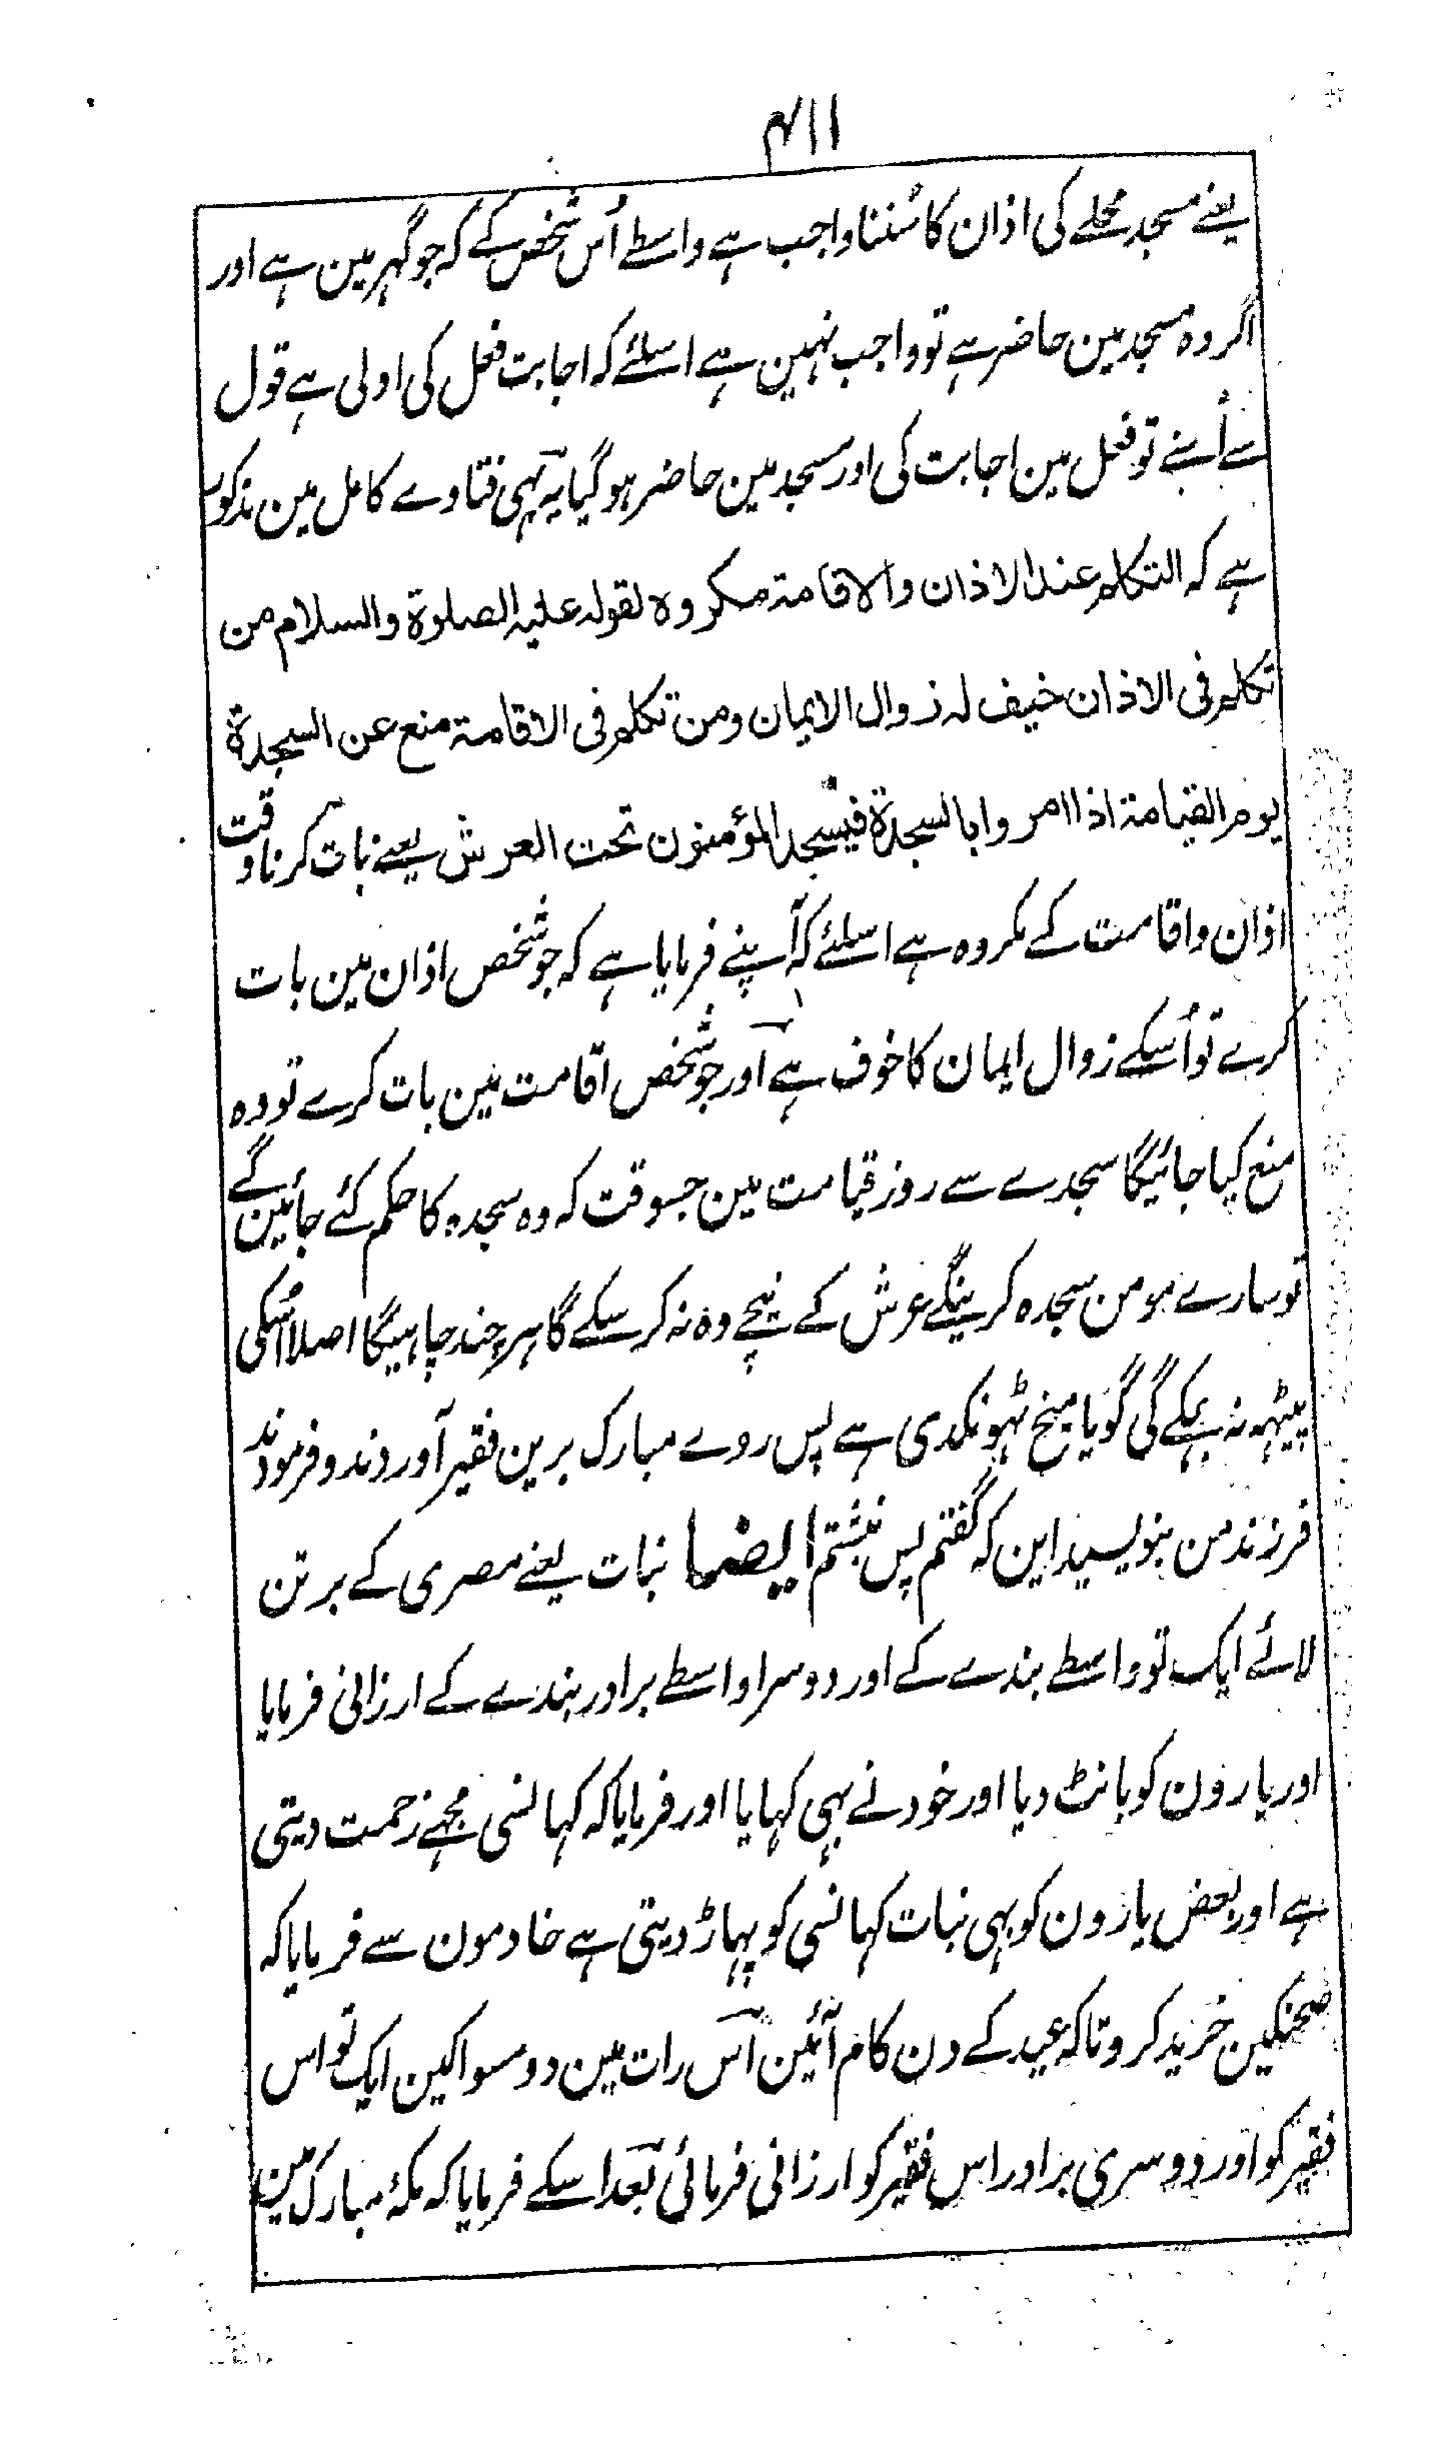 ۴۱۱
یعنے مسجد محلے کی اذان کا سُننا واجب ہے واسطے اُس شخص کے کہ جو گہر مین ہے اور
اگر وہ مسجد مین حاضر ہے تو واجب نہین ہے اسلئے کہ اجابت فعل کی اولی ہے قول
سے اُسنے تو فعل مین اجابت کی اور مسجد مین حاضر ہو گیا یہ بہی فتاوے کامل مین مذکور
ہے کہ التکلم عند الاذان والاقامة مکروه لقوله علیه الصلوة والسلام من
تکلم فی الاذان خیف له زوال الایمان ومن تکلم فی الاقامة منع عن السجدة
یوم القیامة اذا امروا بالسجدة فیسجد المؤمنون تحت العرش یعنے بات کرنا وقت
اذان و اقامت کے مکروہ ہے اسلئے کہ آپنے فرمایا ہے کہ جو شخص اذان مین بات
کرے تو اُسکے زوال ایمان کا خوف ہے اور جو شخص اقامت مین بات کرے تو وہ
منع کیا جائیگا سجدے سے روز قیامت مین جسوقت کہ وہ سجدہ کا حکم کئے جائین گے
تو سارے مومن سجدہ کرینگے عرش کے نیچے وہ نہ کر سکے گا ہر چند چاہیگا اصلا اُسکی
پیٹہہ نہ جہکے گی گویا میخ ٹہونکدی ہے پس روے مبارک برین فقیر آوردند و فرمودند
فرزند من بنویسید این کہ گفتم پس نبشتم ایضا نبات یعنے مصری کے برتن
لائے ایک تو واسطے بندے کے اور دوسرا واسطے برادر بندے کے ارزانی فرمایا
اور یارون کو بانٹ دیا اور خود نے بہی کہایا اور فرمایا کہ کہانسی مجہے زحمت دیتی
ہے اور بعض یارون کو بہی نبات کہانسی کو پہاڑ دیتی ہے خادمون سے فرمایا کہ
صحنکین خرید کرو تا کہ عید کے دن کام آئین اس رات مین دو مسواکین ایک تو اس
فقیر کو اور دوسری برادر اس فقیر کو ارزانی فرمائی بعد اسکے فرمایا کہ مکۂ مبارک مین